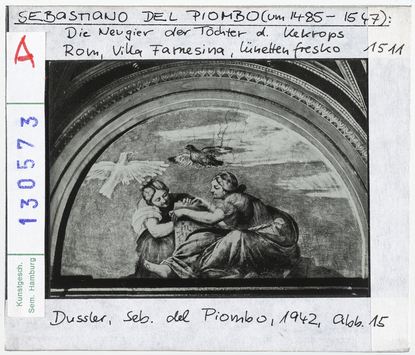 SEBASTIANO DEL PIOMBO (um 1485 - 1547):
Die Neugier der Töchter d. Kekrops
Rom, Villa Farnesina, Lünettenfresko 1511
A
130573
Kunstgesch.
Sem. Hamburg
Dussler, Seb. del Piombo, 1942, Abb. 15